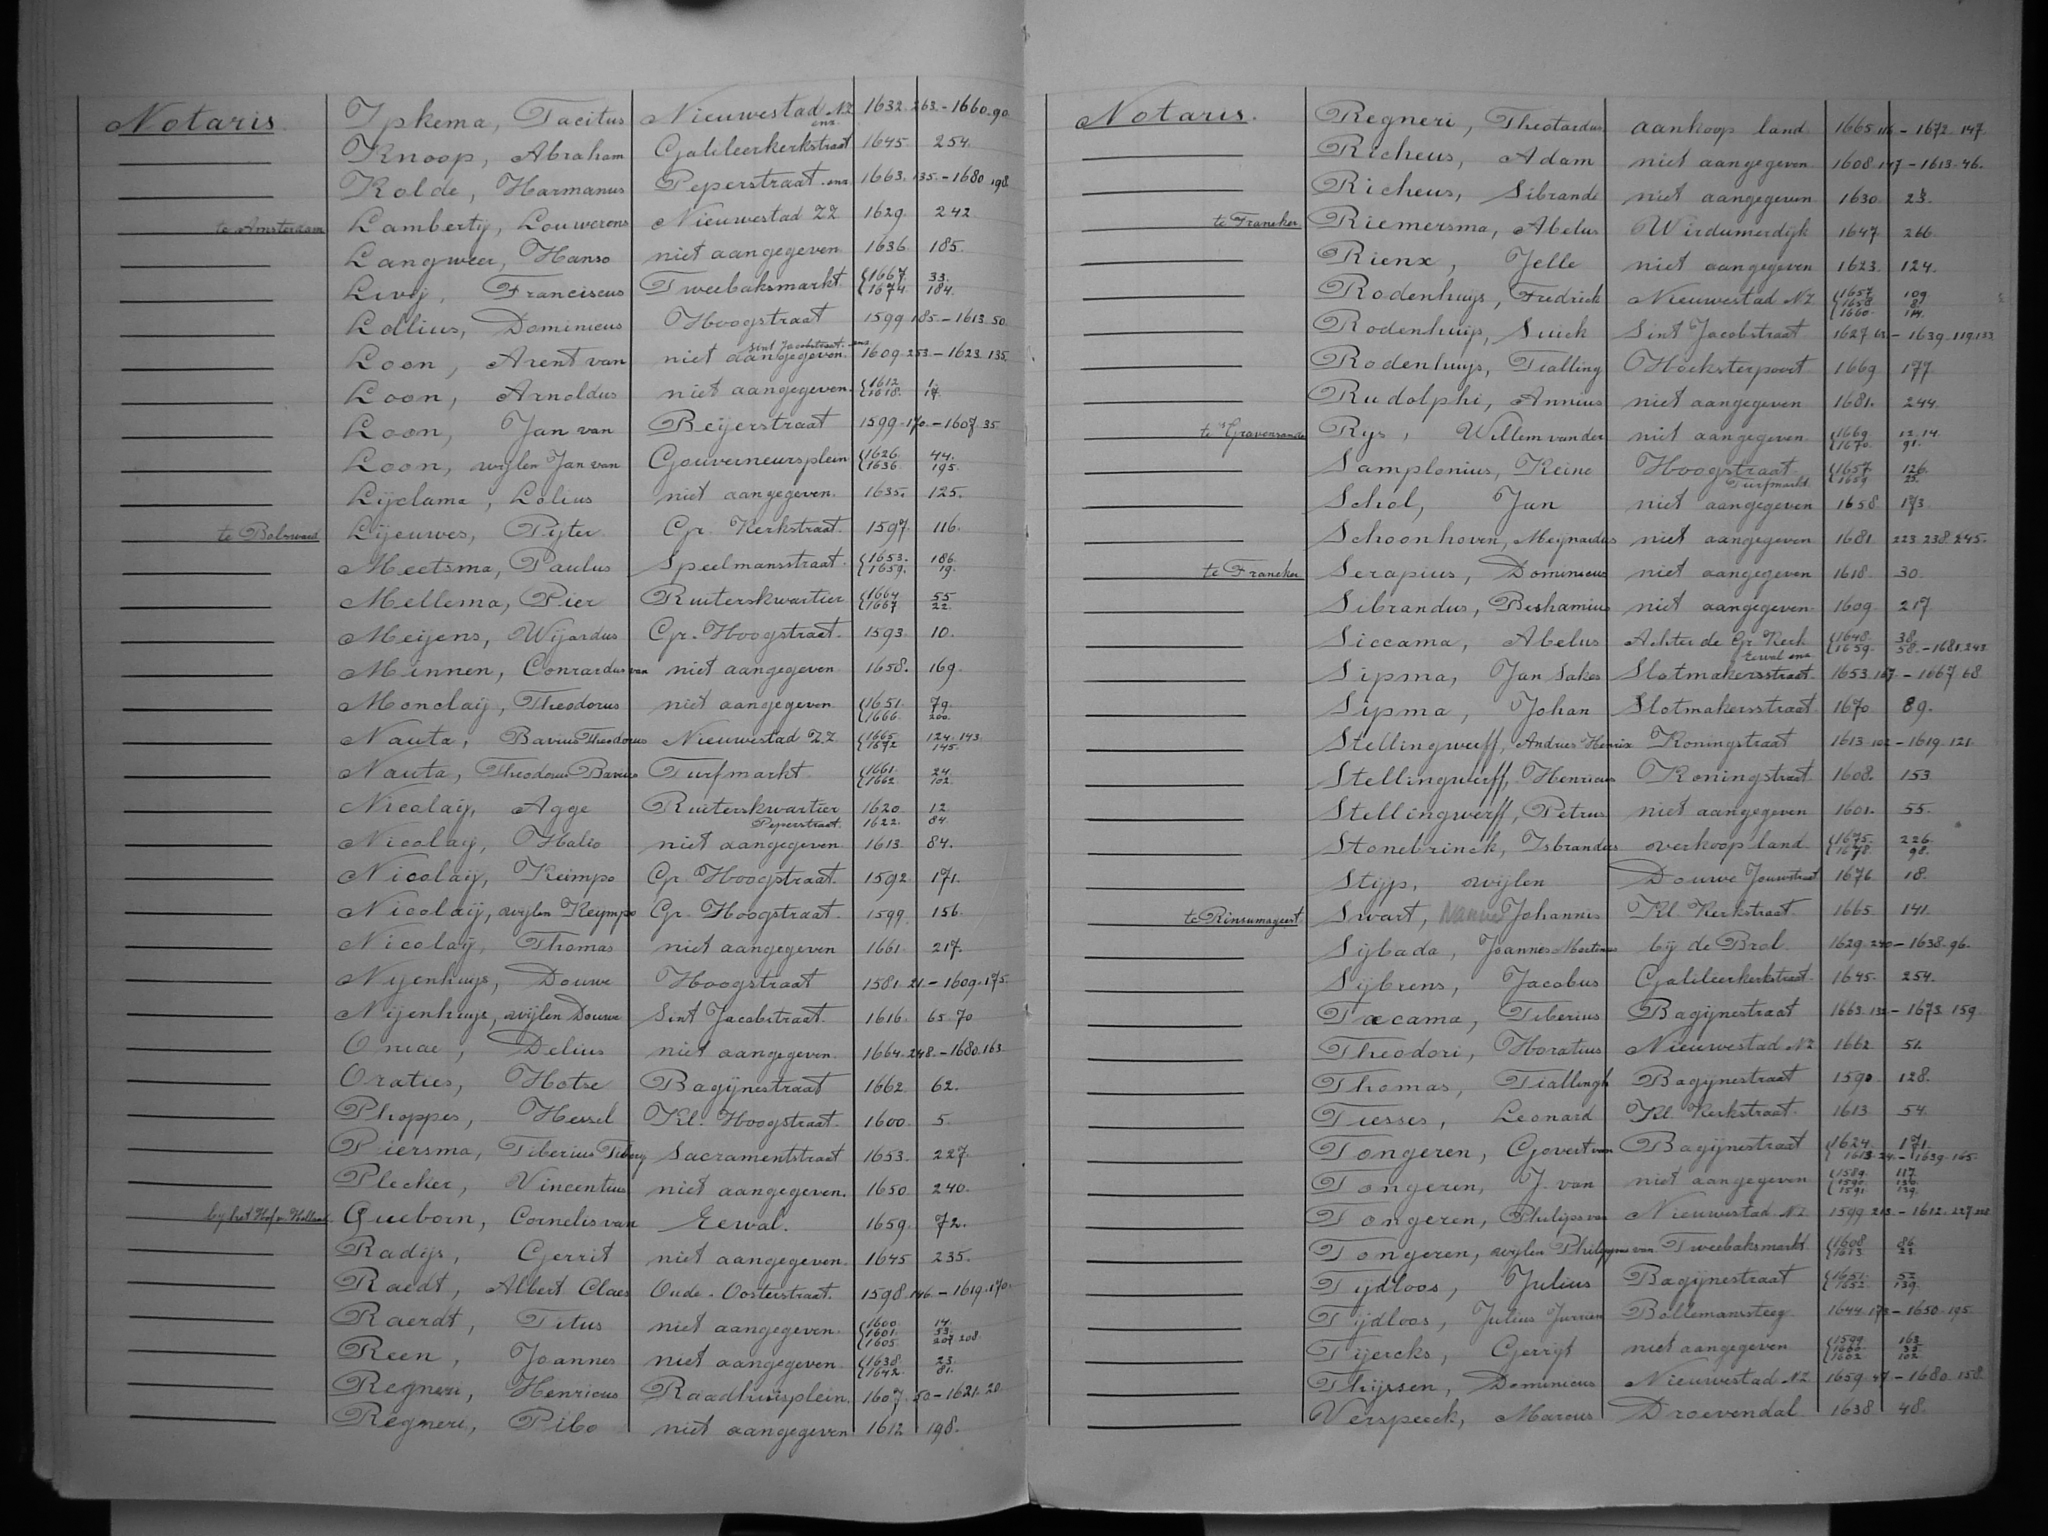 Notaris Ypkema, Tacitus Nieuwestad NZ enz. 1632. 263. - 1660. 90.
Knoop, Abraham Galileerkerkstraat 1645. 254.
Kolde, Harmanus Peperstraat. enz. 1663. 135. - 1680 198.
te Amsterdam Lamberty, Louwerens Nieuwestad ZZ 1629. 242
Langweer, Hanso niet aangegeven 1636. 185.
Levij, Franciscus Tweebaksmarkt. 1667. 33.
1674. 184.
Lollius, Dominicus Hoogstraat 1599 185 - 1613. 50
Loon, Arent van niet aangegeven. Sint Jacobstraat. enz 1609. 253. - 1623. 135.
Loon, Arnoldus niet aangegeven. 1612 1.
1618. 17.
Loon, Jan van Beijerstraat 1599. 170. - 1607. 35
Loon, wijlen Jan van Gouverneursplein 1626. 44.
1636. 195.
Lijclama, Lolius niet aangegeven. 1635. 125.
te Bolsward Lijeuwes, Pijter Gr. Kerkstraat. 1597. 116.
Meetsma, Paulus Speelmansstraat. 1653. 186.
1659. 19.
Mellema, Pier Ruiterskwartier 1664 55
1667 22.
Meijens, Wijardus Gr. Hoogstraat. 1593. 10.
Minnen, Conrardus van niet aangegeven 1658. 169.
Monclaij, Theodorus niet aangegeven 1651. 79.
1666. 200.
Nauta, Bavius Theodorus Nieuwestad ZZ 1665. 124. 143.
1672 145.
Nauta, Theodorus Bavius Turfmarkt. 1661. 24.
1662. 102.
Nicolaij, Agge Ruiterskwartier 1620. 12.
Peperstraat. 1622. 84.
Nicolaij, Halio niet aangegeven 1613. 84.
Nicolaij, Keimpo Gr. Hoogstraat. 1592 171.
Nicolaij, wijlen Keympo Gr. Hoogstraat. 1599. 156.
Nicolaij, Thomas niet aangegeven 1661. 217.
Nyenhuys, Douwe Hoogstraat 1581. 21. - 1609. 175.
Nijenhuys, wijlen Douwe Sint Jacobstraat. 1616. 65. 70
Onias, Delius niet aangegeven. 1664. 248. - 1680. 163.
Oraties, Hotse Bagijnestraat 1662. 62.
Phoppes, Hessel Kl. Hoogstraat. 1600. 5.
Piersma, Tiberius Tibery Sacramentstraat 1653. 227.
Plecker, Vincentius niet aangegeven. 1650. 240.
by het Hof v. Holland. Queborn, Cornelis van Eewal. 1659. 72.
Radijs, Gerrit niet aangegeven. 1645 235.
Raedt, Albert Claes Oude-Oosterstraat. 1598. 146. - 1619. 170.
Raerdt, Titus niet aangegeven. 1600. 14.
1601. 53.
1605. 207. 208.
Reen, Joannes niet aangegeven. 1638. 23.
1642. 81.
Regneri, Henricus Raadhuisplein. 1607. 50 - 1621. 20.
Regneri, Pibo niet aangegeven 1612 198.
Notaris. Regneri, Theotardus aankoop land 1665. 116 - 1672. 147.
Richeus, Adam niet aangegeven 1608. 147 - 1613. 46.
Richeus, Sibrande niet aangegeven 1630. 23.
te Franeker Riemersma, Abelus Wirdumerdijk 1647. 266
Rienx, Jelle niet aangegeven 1623. 124.
Rodenhuys, Fredrick Nieuwestad NZ. 1657. 109
1658 8.
1660. 114.
Rodenhuijs, Suick Sint Jacobstraat 1627. 62 - 1639. 119. 133
Rodenhuijs, Tialling Hoeksterpoort 1669 177
Rudolphi, Annius niet aangegeven 1681. 244.
te 's Gravensande Rys, Willem vander niet aangegeven 1669. 12. 14.
1670. 91.
Samplonius, Keine Hoogstraat. 1657. 126.
Turfmarkt. 1659 25.
Schol, Jan niet aangegeven 1658 173
Schoonhoven, Meynardus niet aangegeven 1681 223. 238. 245.
te Franeker Serapius, Dominicus niet aangegeven 1618. 30.
Sibrandus, Beshamius niet aangegeven 1609. 217
Siccama, Abelus Achter de Gr. Kerk 1648. 38.
Eewal enz 1659. 58. - 1681. 242
Sipma, Jan Sakes Slotmakersstraat. 1653. 167 - 1667. 68
Sypma, Johan Slotmakersstraat 1670. 89.
Stellingwerff, Andries Henrix Koningstraat 1613. 102 - 1619. 121.
Stellingwerff, Henricus Koningstraat. 1608. 153
Stellingwerff, Petrus niet aangegeven 1601. 55.
Stonebrinck, Isbrandus overkoop land 1675. 226.
1678. 98.
Stijp, wijlen Douwe Jouwstraat 1676 18.
te Rinsumageest. Swart, Nanne Johannis Kl. Kerkstraat. 1665. 141.
Sijbada, Joannes Martinus bij de Brol. 1629. 240 - 1638. 96.
Sijbrens, Jacobus Galileerkerkstraat. 1645. 254.
Taecama, Tiberius Bagijnestraat 1663. 132 - 1673. 159.
Theodori, Horatius Nieuwestad NZ 1662 51.
Thomas, Tiallingh Bagijnestraat 1590. 128.
Tiesses, Leonard Kl. Kerkstraat. 1613 54.
Tongeren, Govert van Bagijnestraat 1624. 171.
1613. 24. - 1639. 165.
Tongeren, J. van niet aangegeven 1589. 117.
1590. 136.
1591. 139.
Tongeren, Philips van Nieuwestad NZ 1599. 213. - 1612. 227. 228
Tongeren, wijlen Philippus van Tweebaksmarkt. 1608 86.
1613 23.
Tydloos, Julius Bagijnestraat 1651. 52
1652. 139.
Tijdloos, Julius Jurrien Bollemansteeg 1644. 173 - 1650. 195.
Tijercks, Gerrijt niet aangegeven 1599. 163.
1600. 35
1602 102.
Thijssen, Dominicus Nieuwestad NZ 1659. 47 - 1680. 158.
Verspeeck, Marcus Droevendal. 1638 48.